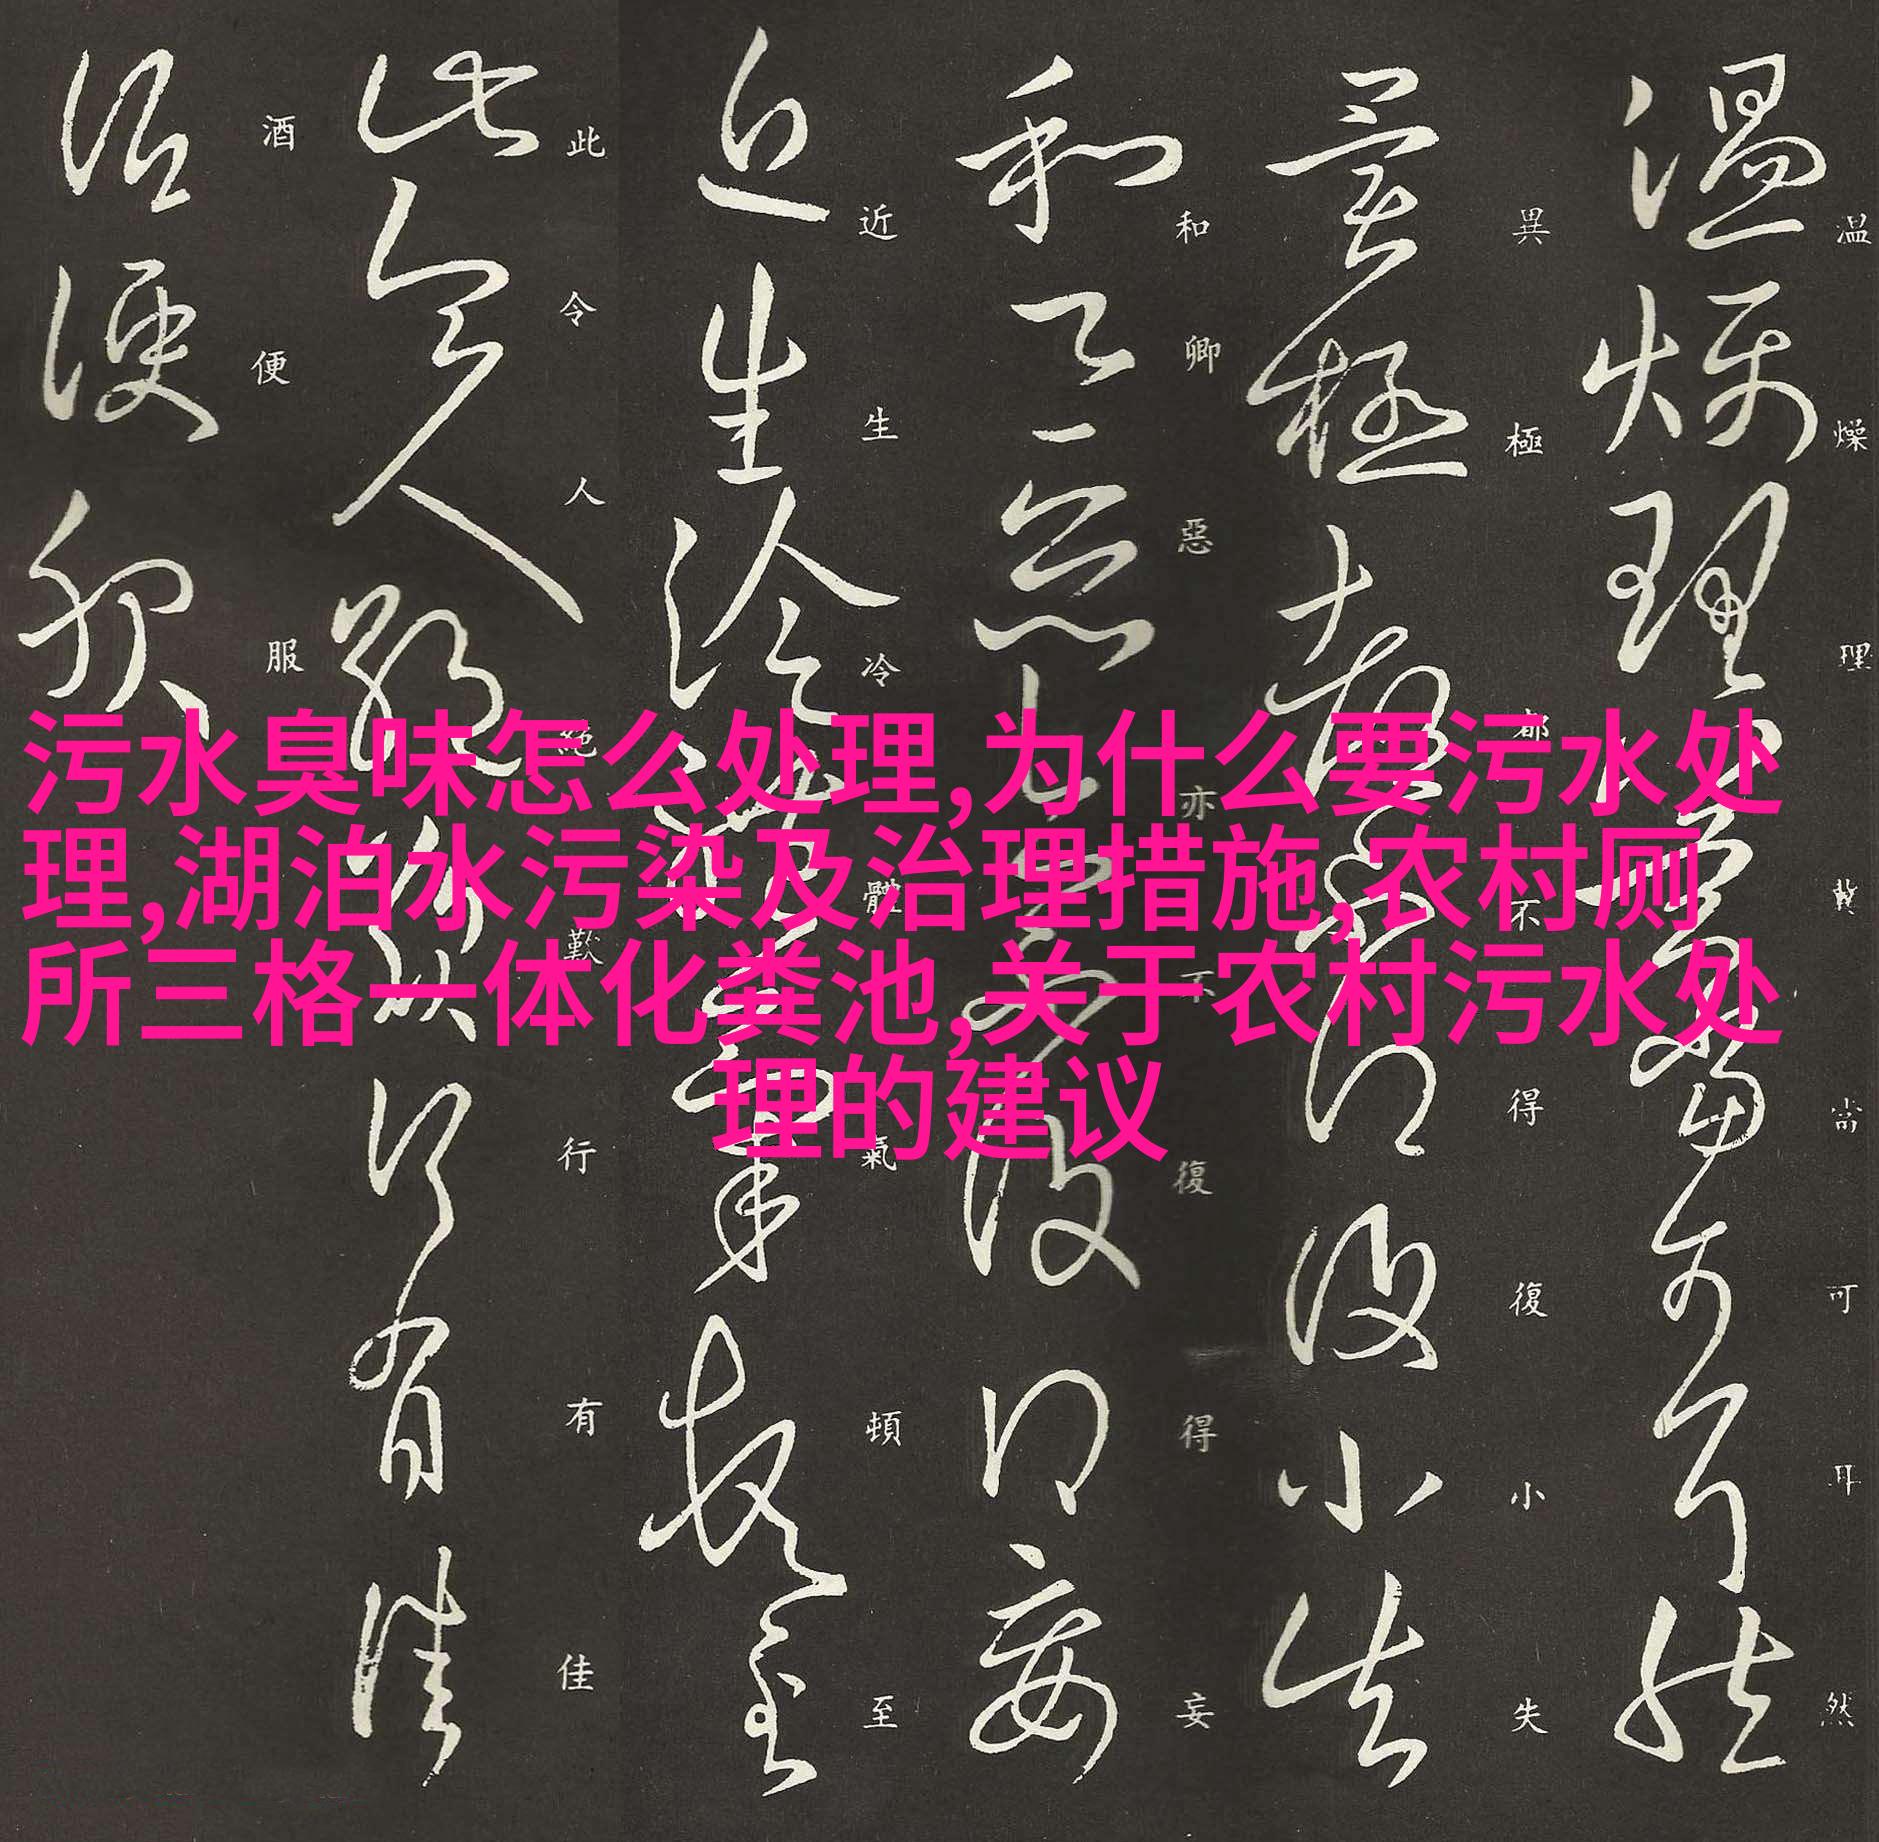 温燥理冀當可耳然
異極都不得復小失
和卿惡亦不復得妄
近生冷體氣頓至
此令人絕歎行有佳
酒便服
污水臭味怎么处理,为什么要污水处
理,湖泊水污染及治理措施,农村厕
所三格一体化粪池,关于农村污水处
理的建议